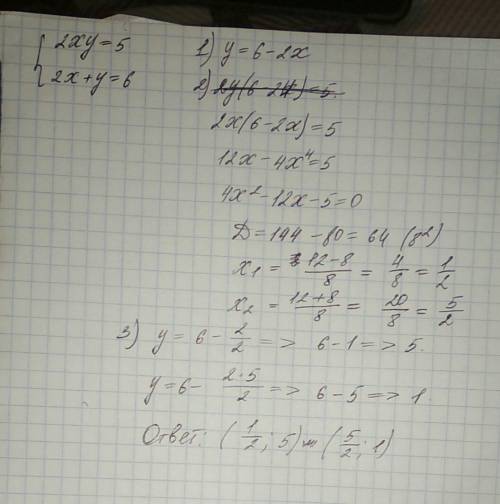 { 2xy=5
2x+y=6
1) y=6-2x
2)
2x(6-2x)=5
12x-4x⁴=5
4x²-12x-5=0
D=144-80=64 (8²)
x₁ = (12-8)/8 = 4/8 = 1/2
x₂ = (12+8)/8 = 20/8 = 5/2
3) y=6-2/2 => 6-1 => 5.
y=6-(2·5)/2 => 6-5 => 1.
Ответ: (1/2; 5) и (5/2; 1)